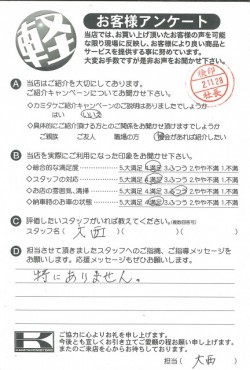 軽
お客様アンケート
当店では、お買い上げ頂いたお客様の声を可能
な限り現場に反映し、お客様により良い商品と
サービスを提供する事に努めています。
大変お手数ですが是非お声をお聞かせ下さい。
検印
2.11.28
社長
A 当店はご紹介を大切にしております。
ご紹介キャンペーンについてお聞かせ下さい。
◇カミタケご紹介キャンペーンのご説明はありましたでしょうか
はい いいえ
◇具体的にご紹介頂ける方とのご関係をお聞かせ頂けますでしょうか
ご親族 ご友人 職場の方 機会があれば紹介したい
B 当店を実際にご利用になった印象をお聞かせ下さい。
◇総合的な満足度 5.大満足 4.満足 3.ふつう 2.やや不満 1.不満
◇スタッフの対応 5.大満足 4.満足 3.ふつう 2.やや不満 1.不満
◇お店の雰囲気、清掃 5.大満足 4.満足 3.ふつう 2.やや不満 1.不満
◇納車時のお車の状態 5.大満足 4.満足 3.ふつう 2.やや不満 1.不満
C 評価したいスタッフがいれば教えてください。(複数回答可)
スタッフ名( 大西 )( )( )
D 担当させて頂きましたスタッフへのご指摘、ご指導メッセージを
お願いします。応援メッセージもぜひお願いします。
特にありません。
K
ご協力に心よりお礼を申し上げます。
今後とも宜しくお引き立てご愛顧の程お願い申し上げます。
またのご来店を心からお待ちしております。
担当( 大西 )